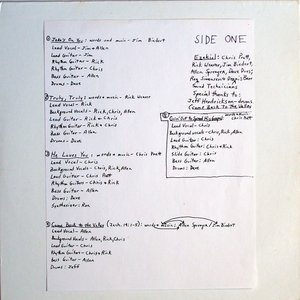 ① Jake's On You: words and music - Jim Bindert
Lead Vocal - Jim + Allen
Lead Guitar - Jim
Rhythm Guitar - Rick
Lead Guitar - Chris
Bass Guitar - Allen
Drums - Dave
② Truly, Truly: words + music - Rick Weaver
Lead Vocal - Rick
Background Vocals - Rick, Chris, Allen
Lead Guitar - Rick + Chris
Rhythm Guitar - Rick + Chris
Bass Guitar - Allen
Drums - Dave
③ He Loves You: words + music - Chris Pratt
Lead Vocal - Chris
Background Vocals - Chris, Rick, Allen
Lead Guitar - Chris Pratt
Rhythm Guitars - Chris + Rick
Bass Guitar - Allen
Drums - Dave
Synthesizer - Ron
Come Back to the Valley words + music: Allen Sprengen / Jim Bindert
Lead Vocal - Allen
Background Vocals - Allen, Rick, Chris
Lead Guitar - Chris
Rhythm Guitar - Chris + Rick
Bass Guitar - Allen
Drums: Jeff
SIDE ONE
Ezekiel: Chris Pratt,
Rick Weaver, Jim Bindert,
Allen Sprengen, Dave
Sound Technicians
Special thanks to:
Jeff Hendrickson - drums
(Come Back To The Valley)
words + music
Chris Pratt
Goin' Out to Spread His Gospel
Lead Vocal - Chris
Background vocals - Chris, Rick, Allen
Lead Guitar: Chris
Rhythm Guitar: Chris + Rick
Slide Guitar: Chris
Bass Guitar: Allen
Drums: Dave